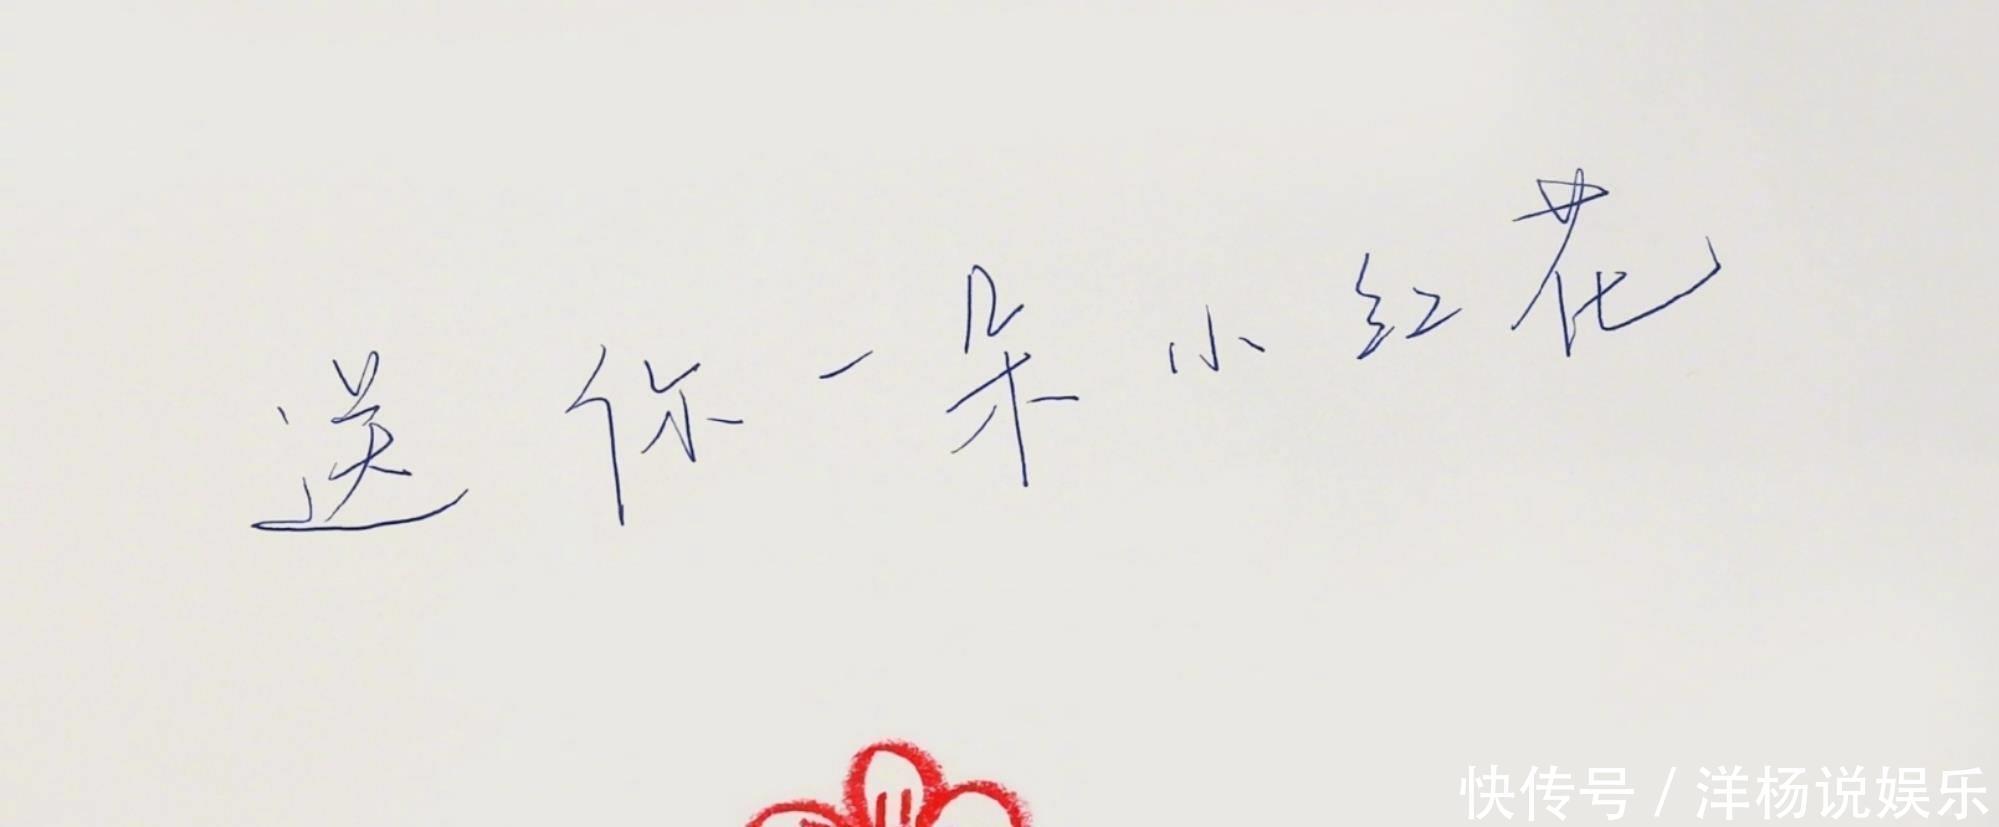 送你一朵小红花
快传号/洋杨说娱乐